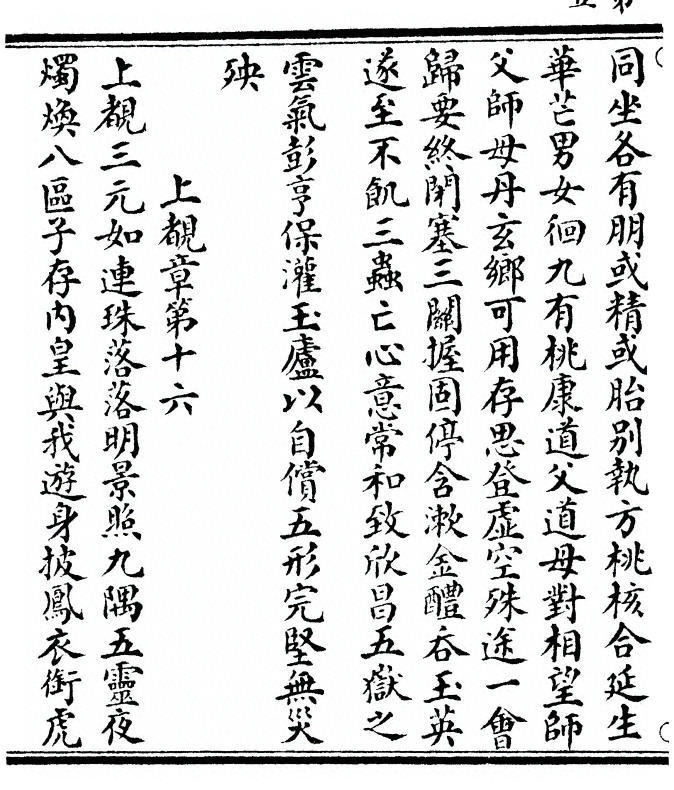 同坐各有朋或精或胎別執方桃核合延生
華芒男女徊九有桃康道父道母對相望師
父師母丹玄鄉可用存思登虛空殊途一會
歸要終閉塞三關握固停含漱金醴吞玉英
遂至不飢三蟲亡心意常和致欣昌五嶽之
雲氣彭亨保灌玉廬以自償五形完堅無災
殃
上覩章第十六
上覩三元如連珠落落明景照九隅五靈夜
燭煥八區子存內皇與我遊身披鳳衣銜虎